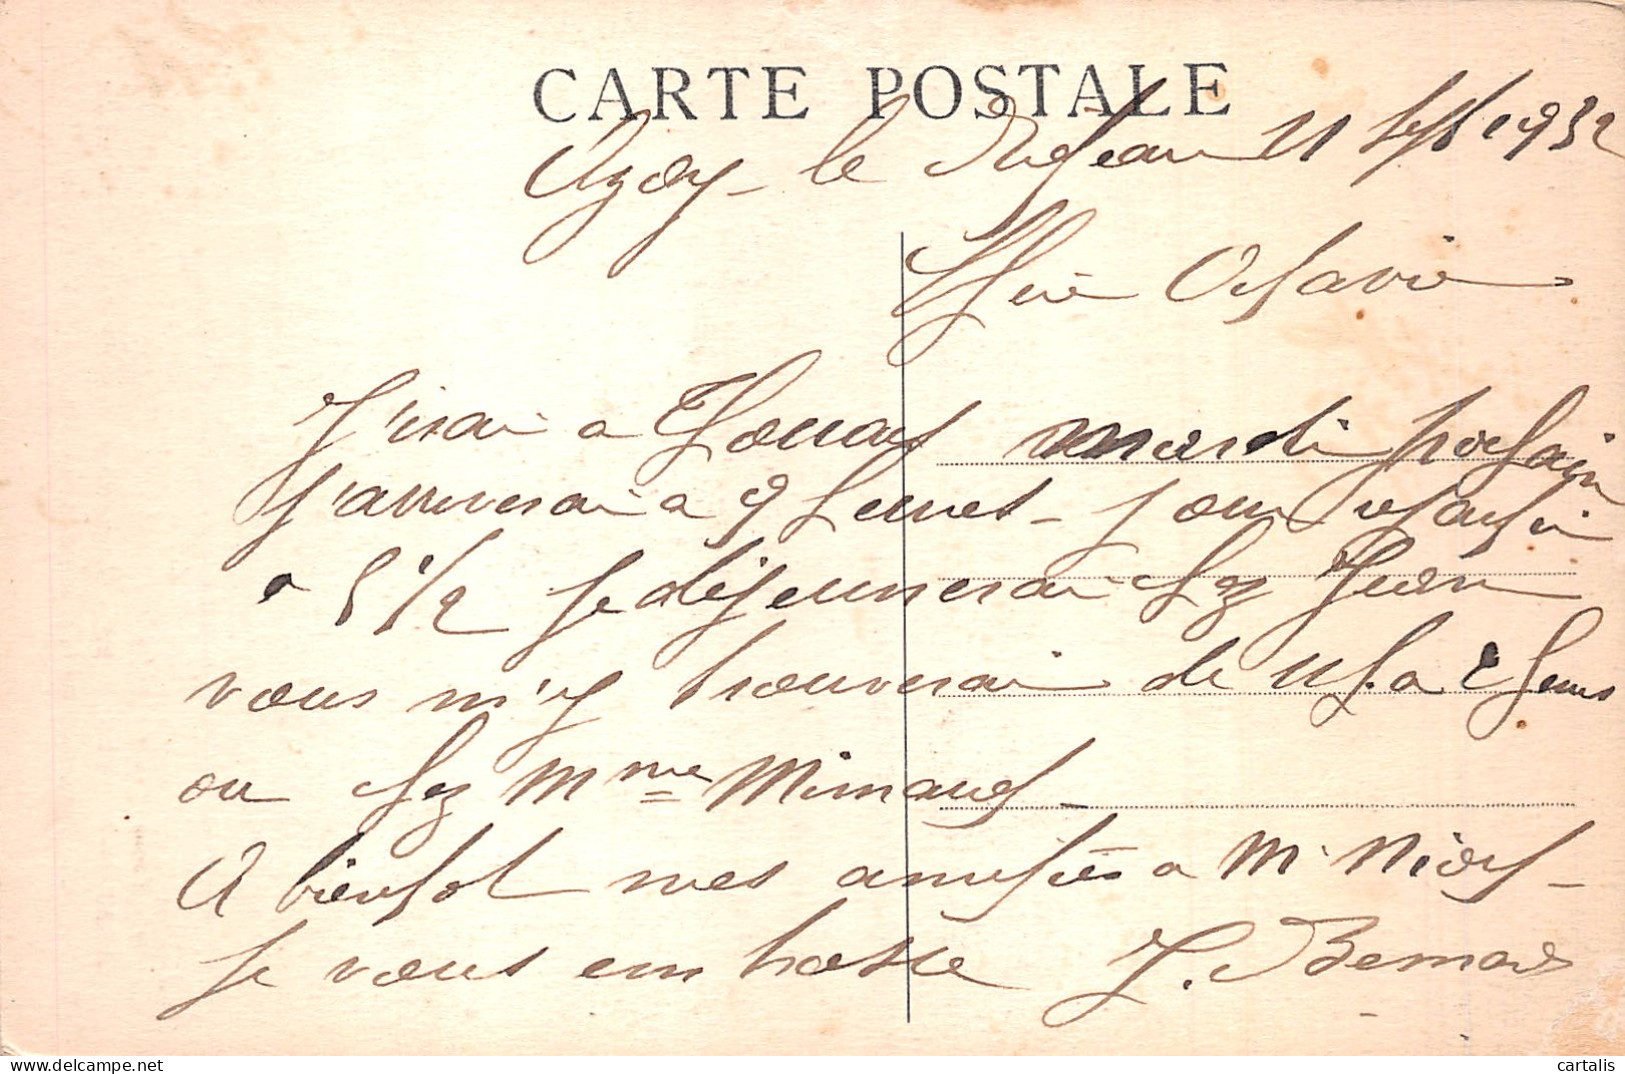 CARTE POSTALE
Azay le Rideau 11 Sept 1932
Chère Octavie
J'irai a Thouars mardi prochain
J'arriverai a 9 heures - pour repartir
a 5 1/2 Je déjeunerai chez Jean
vous m'y trouverai de 11 h. a 2 heures
ou chez Mme
A bientot mes amitiés a M. Niort -
Je vous embrasse J. Bernard
cartalis